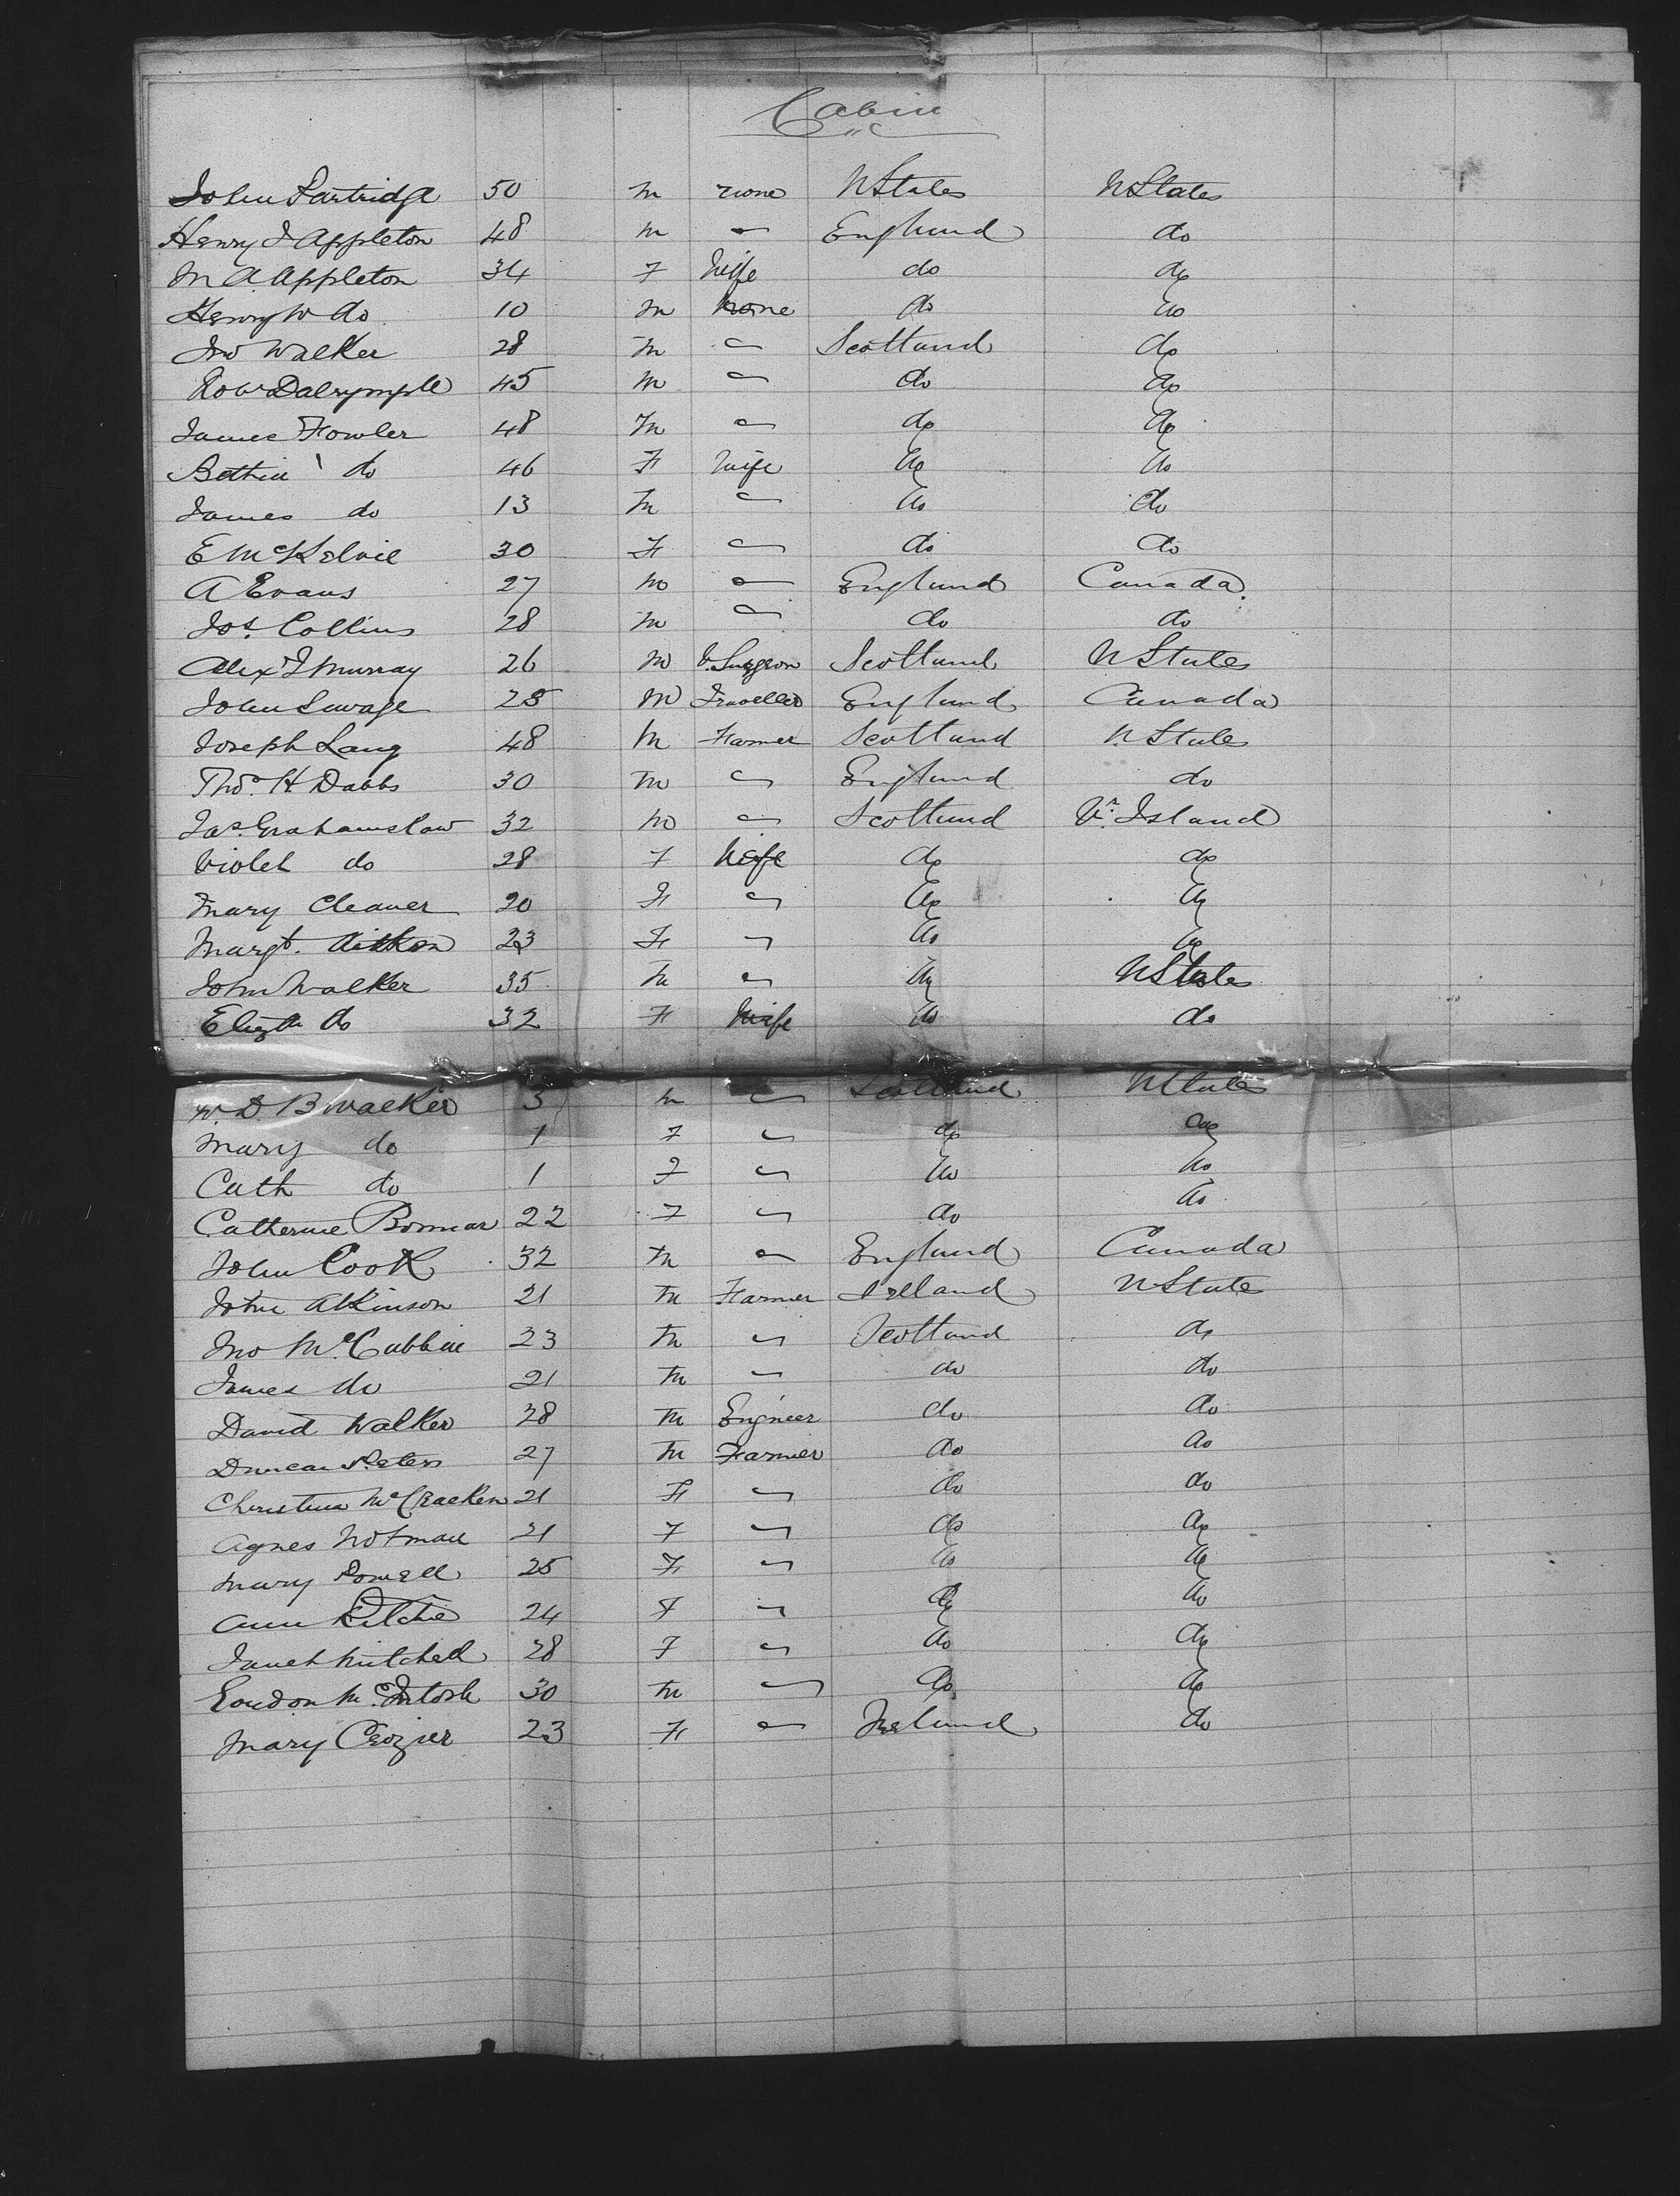 Cabin
John Partridge 50 m none UStates UStates
Henry J Appleton 48 m " England do
M A Appleton 34 F Wife do do
Henry W do 10 m none do do
Jno Walker 28 m " Scotland do
Robt Dalrymple 45 m " do do
James Fowler 48 m " do do
Bethia do 46 F Wife do do
James do 13 m " do do
E McKelvie 30 F " do do
A Evans 27 m " England Canada
Jos. Collins 28 m " do do
Alex J Murray 26 m V. Surgeon Scotland UStates
John Savage 25 m Traveller England Canada
Joseph Lang 48 m Farmer Scotland UStates
Thos. H Dabbs 30 m " England do
Jas. Grahamslaw 32 m " Scotland Vr. Island
Violet do 28 F Wife do do
Mary Cleaver 20 F " do do
Margt. Aitken 23 F " do do
John Walker 35 m " do UStates
Elizth do 32 F Wife do do
W. D B Walker 3 m " Scotland UStates
Mary do 1 F " do do
Cath do 1 F " do do
Catherine Bonnar 22 F " do do
John Cook 32 m " England Canada
John Atkinson 21 m Farmer Ireland UState
Jno McCubbin 23 m " Scotland do
James do 21 m " do do
David Walker 28 m Engineer do do
Duncan Peters 27 m Farmer do do
Christina McCracken 21 F " do do
Agnes Notman 21 F " do do
Mary Powell 25 F " do do
Ann Ritchie 24 F " do do
Janet Mitchell 28 F " do do
Loudon McIntosh 30 m " do do
Mary Crozier 23 F " Ireland do